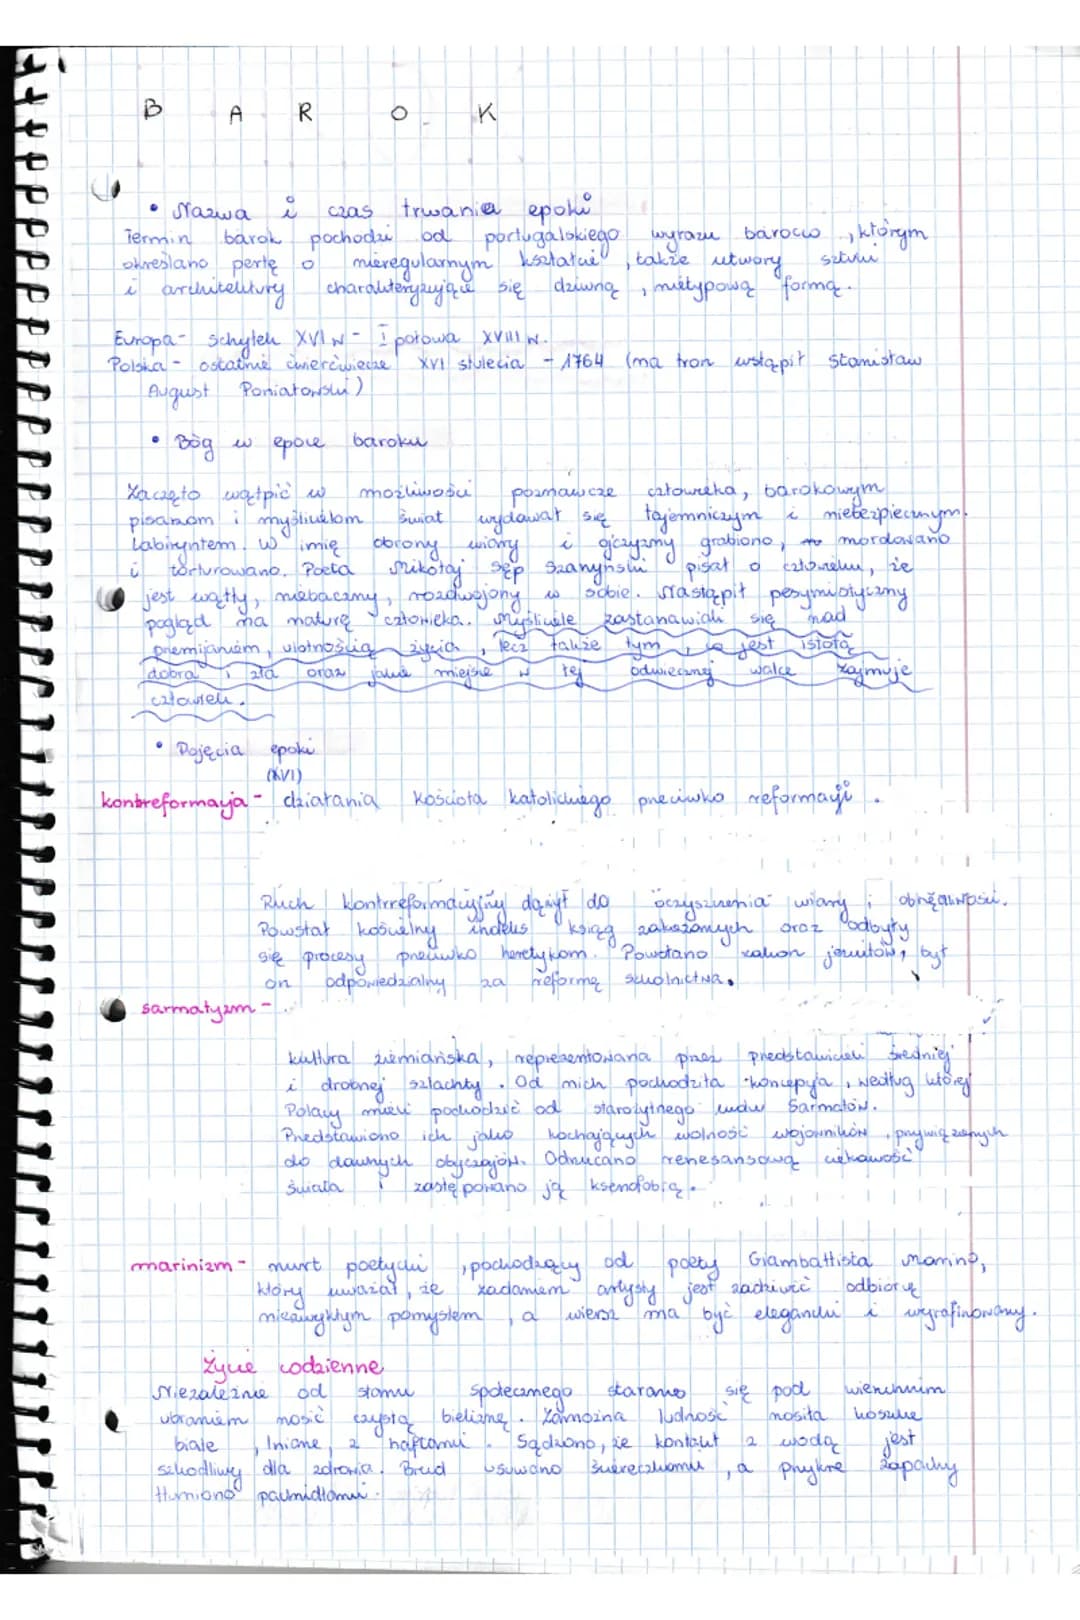 B A R O K
• Nazwa i czas trwania epoki
Termin barok pochodzi od portugalskiego wyrazu barocco, którym
określano perłę o nieregularnym kształcie, także utwory sztuki
i architektury charakteryzujące się dziwną, nietypową formą.
Europa - schyłek XVI w - I połowa XVIII w.
Polska - ostatnie ćwierćwiecze XVI stulecia - 1764 (na tron wstąpił Stanisław
August Poniatowski)
• Bóg w epoce baroku
Zaczęto wątpić w możliwości poznawcze człowieka, barokowym
pisarzom i myślicielom świat wydawał się tajemniczym i niebezpiecznym.
Labiryntem. W imię obrony wiary i ojczyzny grabiono, mordowano
i torturowano. Poeta Mikołaj Sęp Szarzyński pisał o człowieku, że
jest wątły, niebaczny, rozdwojony w sobie. Nastąpił pesymistyczny
pogląd na naturę człowieka. Myśliciele zastanawiali się nad
przemijaniem, ulotnością życia, lecz także tym, co jest istotą
dobra i zła oraz jakie miejsce w tej odwiecznej walce zajmuje
człowiek.
• Pojęcia epoki
(XVI)
kontreformacja - działania kościoła katolickiego przeciwko reformacji.
Ruch kontrreformacyjny dążył do oczyszczenia wiary i obrzędowości.
Powstał kościelny indeks ksiąg zakazanych oraz odbyły
się procesy przeciwko heretykom. Powołano zakon jezuitów, był
on odpowiedzialny za reformę szkolnictwa.
sarmatyzm -
kultura ziemiańska, reprezentowana przez przedstawicieli średniej
i drobnej szlachty. Od nich pochodziła koncepcja, według której
Polacy mieli pochodzić od starożytnego ludu Sarmatów.
Przedstawiono ich jako kochających wolność wojowników, przywiązanych
do dawnych obyczajów. Odrzucano renesansową ciekawość
świata i zastępowano ją ksenofobią.
marinizm - nurt poetycki, pochodzący od poety Giambattista Marino,
który uważał, że zadaniem artysty jest zadziwić odbiorcę
niezwykłym pomysłem, a wiersz ma być elegancki i wyrafinowany.
Życie codzienne
Niezależnie od stanu społecznego starano się pod wierzchnim
ubraniem nosić czystą bieliznę. Zamożna ludność nosiła koszule
białe, lniane, z haftami. Sądzono, że kontakt z wodą jest
szkodliwy dla zdrowia. Brud usuwano ściereczkami, a przykre zapachy
tłumiono pachnidłami.